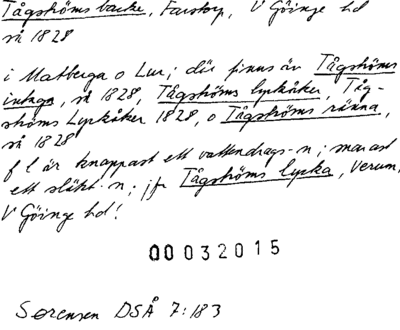 Tågströms backe, Farstorp, V Göinge hd
så 1828
i Matberga o Lur; där finns även Tågströms
intaga, så 1828, Tågströms lyckåker, Tåg-
ströms Lyckåker 1828, o Tågströms ränna,
så 1828
f l är knappast ett vattendrags-n; snarast
ett släkt-n; jfr Tågströms lycka, Verum,
V Göinge hd!
00032015
Sørensen DSÅ 7:183